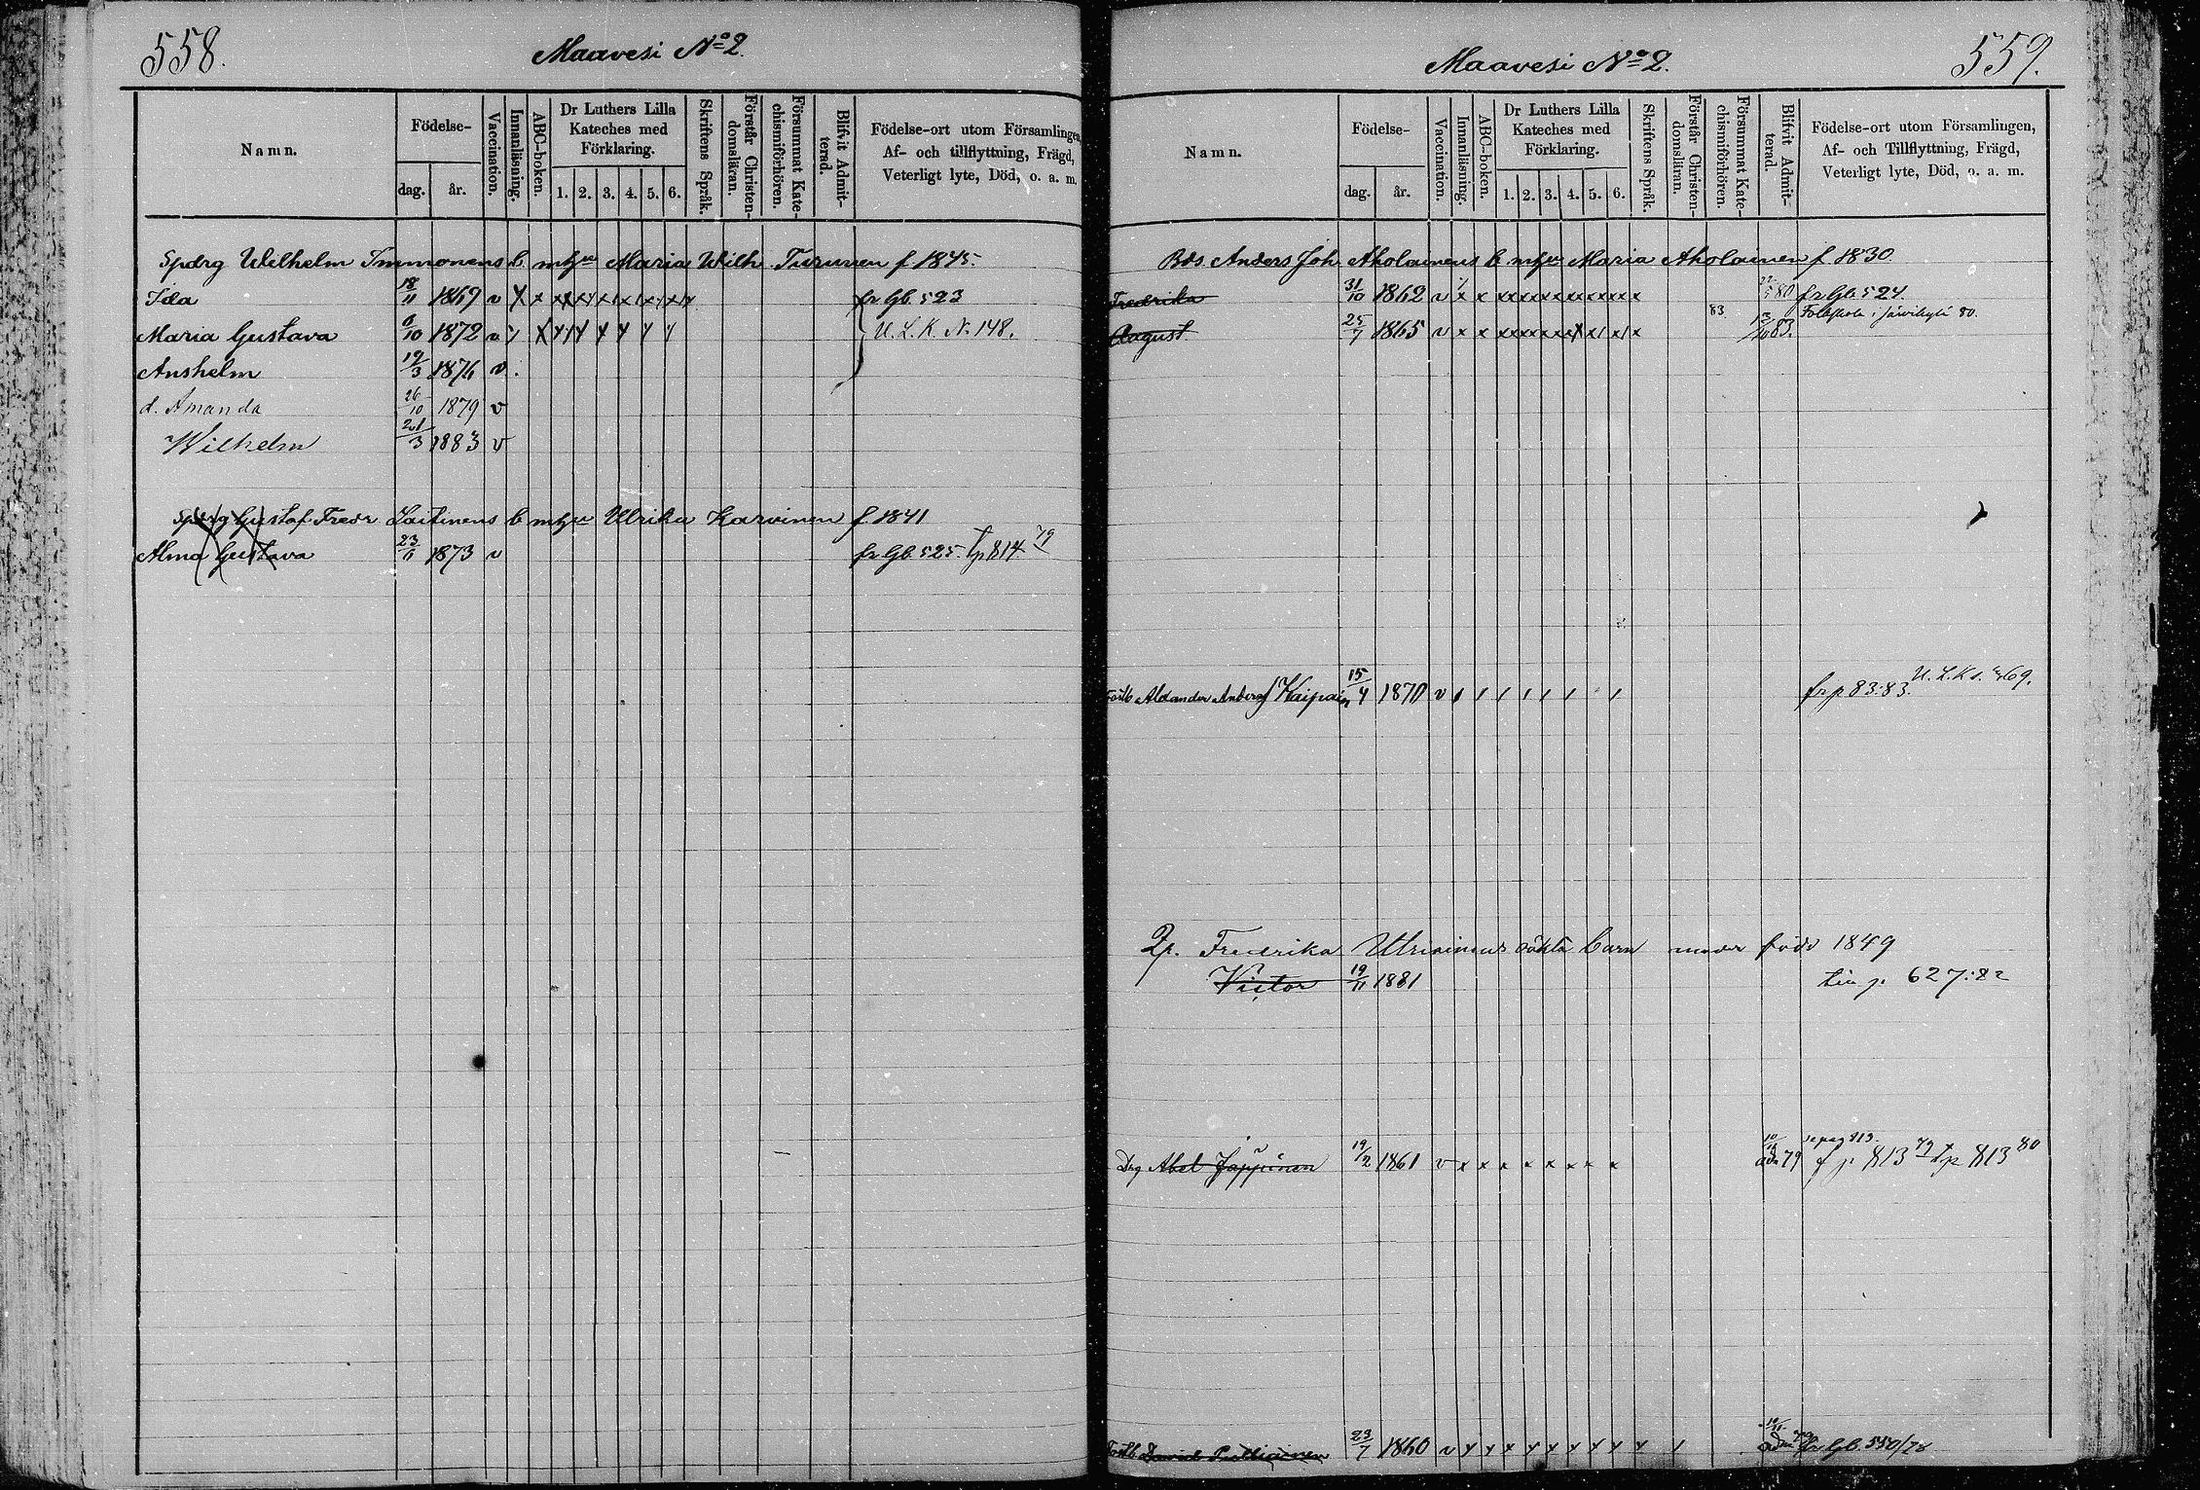 558.
Maavesi No 2.
Namn.
Födelse-
dag.
år.
Vaccination.
Innanläsning.
ABC-boken.
Dr Luthers Lilla Kateches med Förklaring.
1. 2. 3. 4. 5. 6.
Skriftens Språk.
Förstår Christendomsläran.
Försummat Katechismiförhören.
Blifvit Admitterad.
Födelse-ort utom Församlingen, Af- och tillflyttning, Frägd, Veterligt lyte, Död, o. a. m.
Spdrg Wilhelm Immonens b. m hu Maria Wilh. Turunen f 1845.
Ida 18/11 1869 v fr Gb. 523
Maria Gustava 6/10 1872 v U. L. K. N. 148.
Anshelm 19/3 1876 v
d. Amanda 26/10 1879 v
Wilhelm 21/3 1883 v
Spdrg Gustaf Fredr Laitinens b m hu Ulrika Karvinen f. 1841
Alma Gustava 23/11 1873 v fr Gb. 525. tp 814 79
559.
Maavesi No 2.
Namn.
Födelse-
dag.
år.
Vaccination.
Innanläsning.
ABC-boken.
Dr Luthers Lilla Kateches med Förklaring.
1. 2. 3. 4. 5. 6.
Skriftens Språk.
Förstår Christendomsläran.
Försummat Katechismiförhören.
Blifvit Admitterad.
Födelse-ort utom Församlingen, Af- och Tillflyttning, Frägd, Veterligt lyte, Död, o. a. m.
Bds. Anders Joh Aholainens b m hu Maria Aholainen f 1830
Fredrika 31/10 1862 v x x x x x x x x x 80 fr Gb. 524.
August 25/7 1865 v x x x x x x x x x 83 83. Folkskola i Järvikylä 80.
Alexander Kaipain 15/4 1870 v fr p 83:83. U. L. K. s. 469.
Fredrika oäkta barn moder född 1849
Victor 19/11 1881 till p. 627:82
Drg Abel Jäppinen 19/2 1861 v x x x x x x x x 79 se pag 813. f p 813 79 tp 813 80
David Pulliainen 23/7 1860 v fr Gb. 550/78